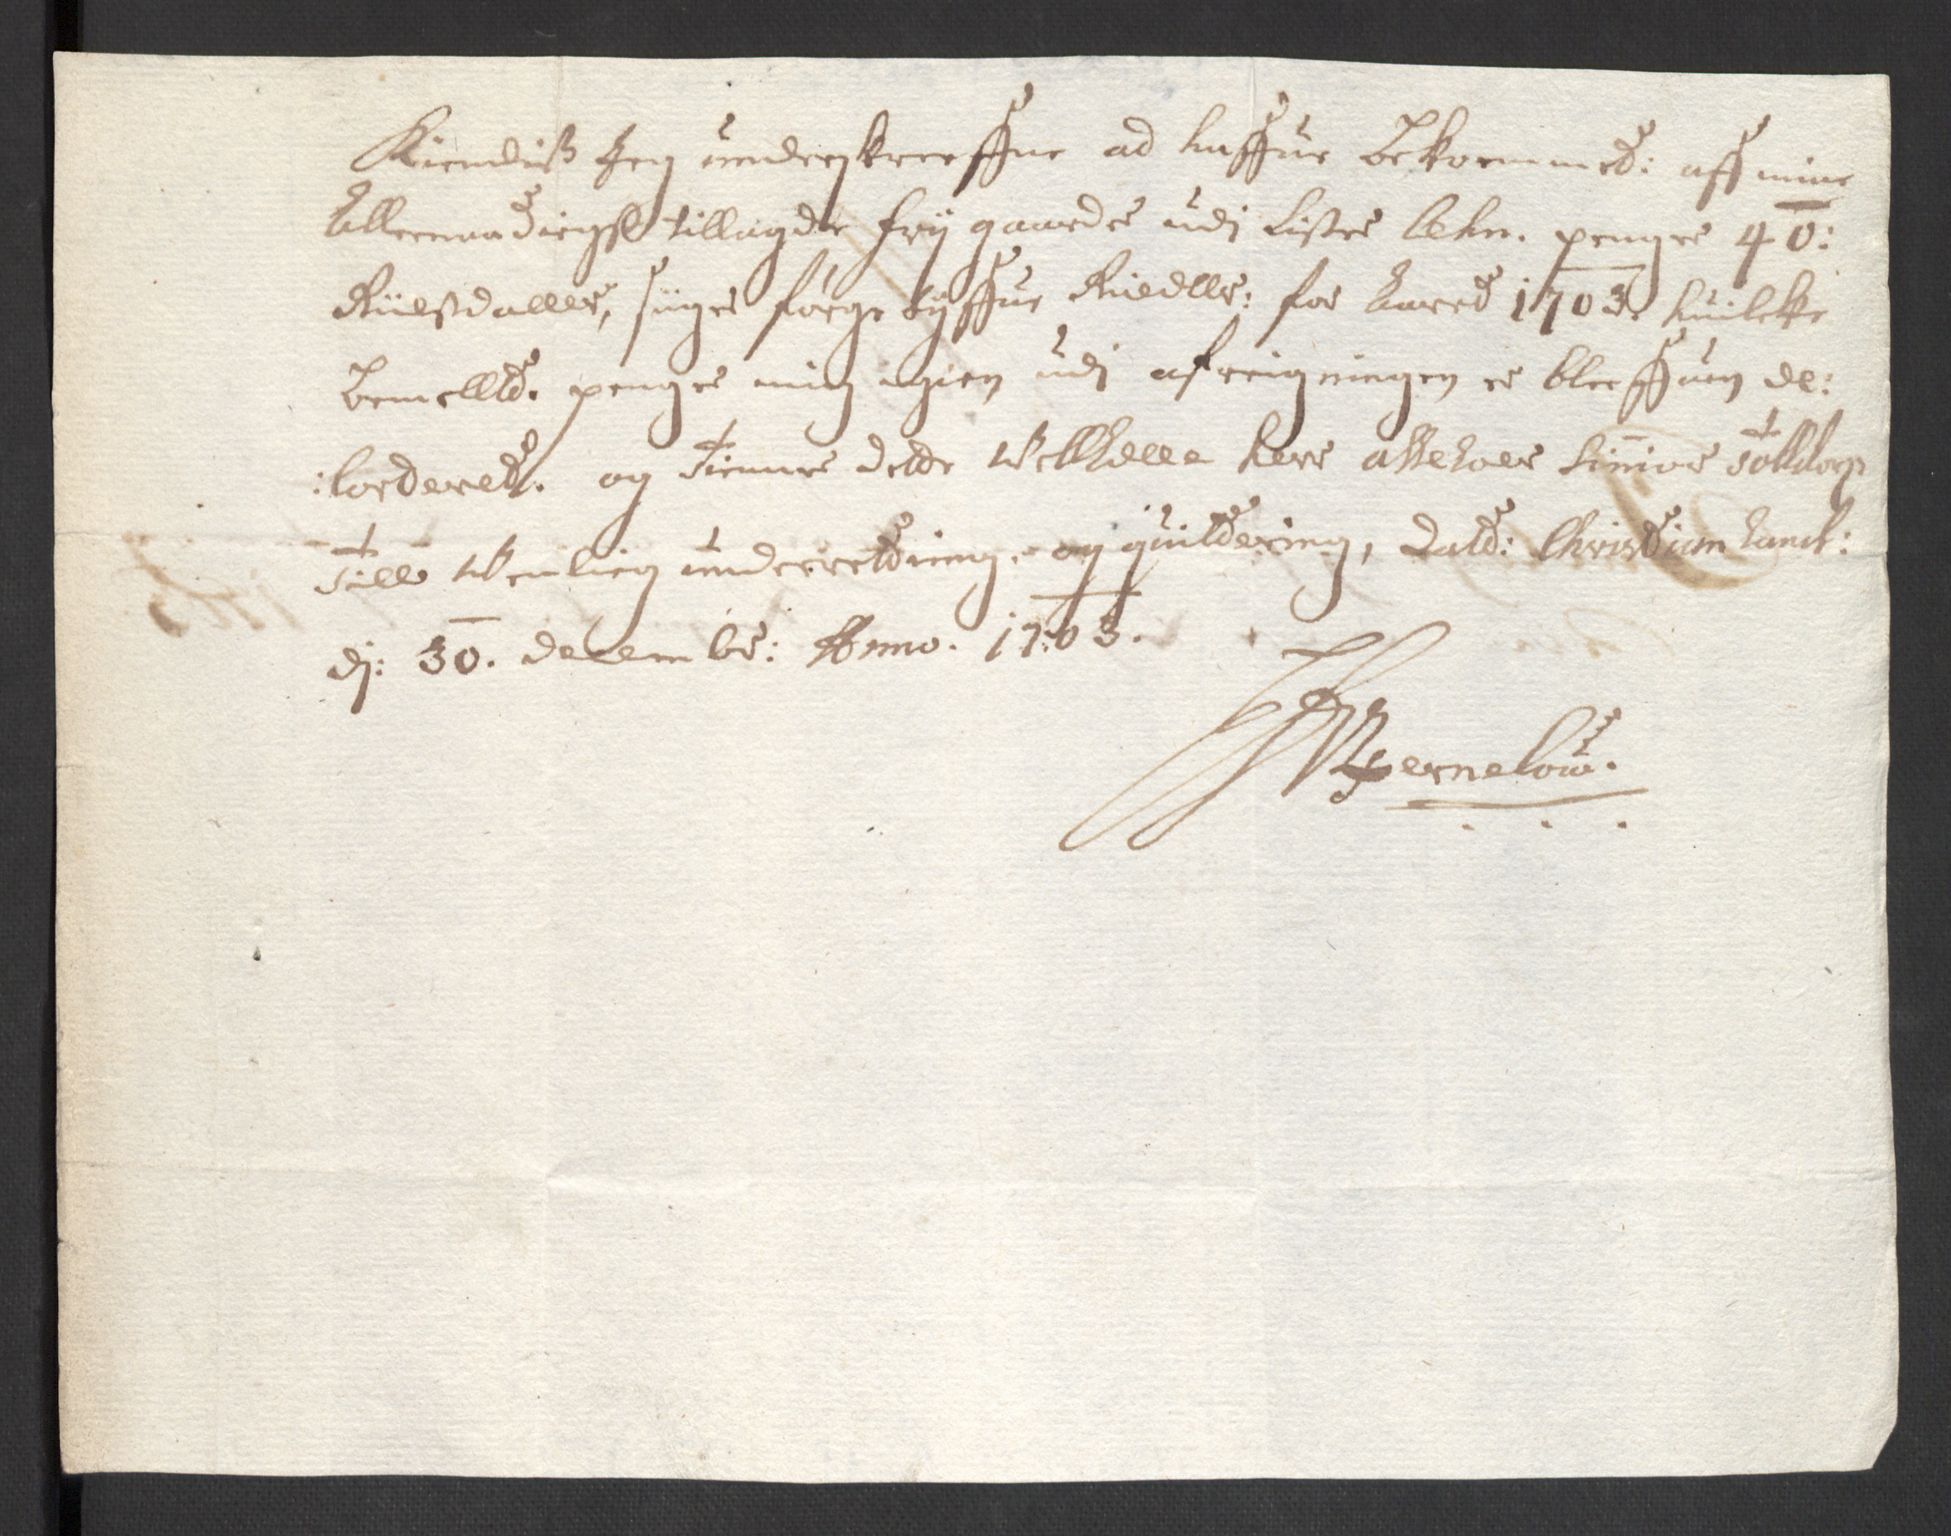 Kiendis Jeg underskreffne ad haffue Bekoemmed: aff mine
Allernaadiegst tillagde frÿ gaarde udj Listre lehn. penge 40:
Rüelsdaller, siger förgetÿffue Riedler: for Aared 1703. huilcke
bemellte. penge mig igien udj afreigningen er bleffuen de:
:lorderet. og tiener dette Welædle herr Assesoer Sinior Tolldorp
Till Wenlieg underretdning, og quitdering, Datd: Christian Sand:
dj: 30. december: Anno. 1703.
Wernelouw.